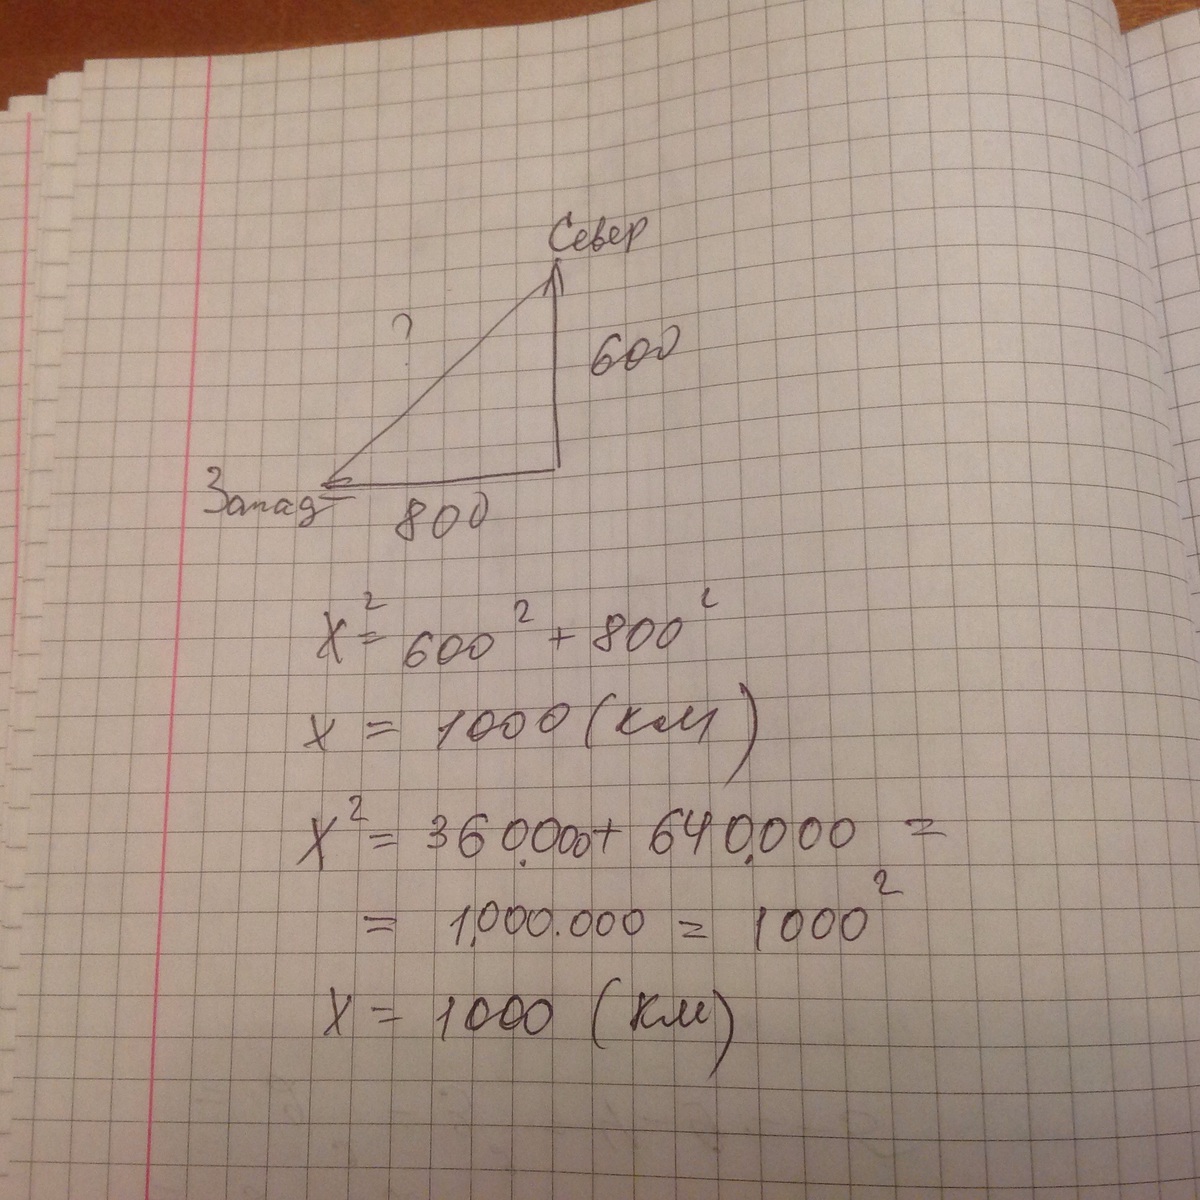 Север
?
600
Запад
800
X² = 600² + 800²
x = 1000 (км)
X² = 360.000 + 640.000 =
= 1.000.000 = 1000²
X = 1000 (км)